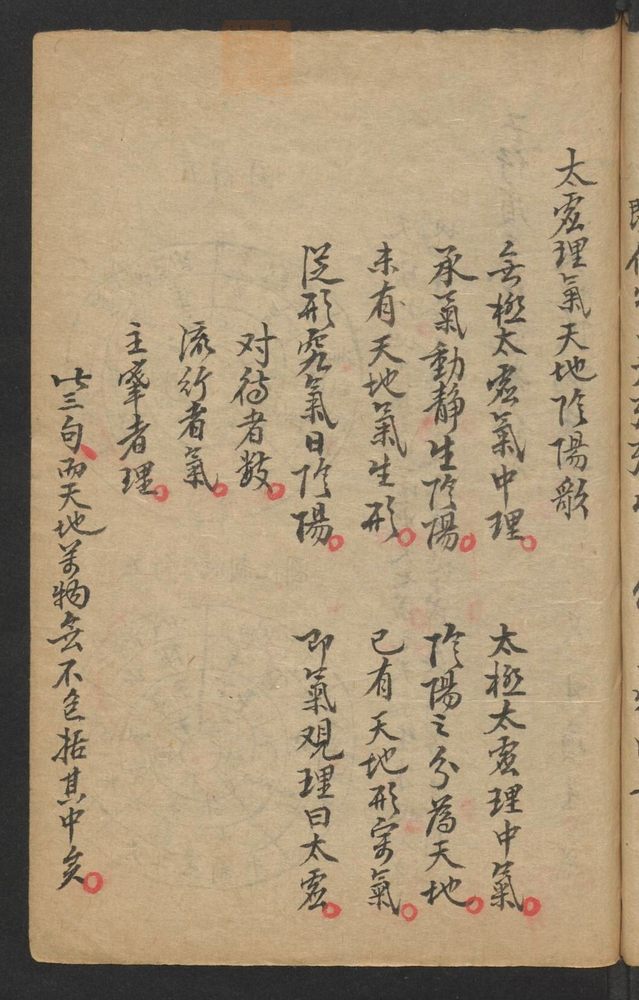 太虛理氣天地陰陽歌
無極太虛氣中理。 太極太虛理中氣。
承氣動靜生陰陽。 陰陽之分為天地。
未有天地氣生形。 已有天地形寓氣。
從形究氣曰陰陽。 即氣观理曰太虛。
对待者數。
流行者氣。
主宰者理。
此三句、而天地萬物無不包括其中矣。